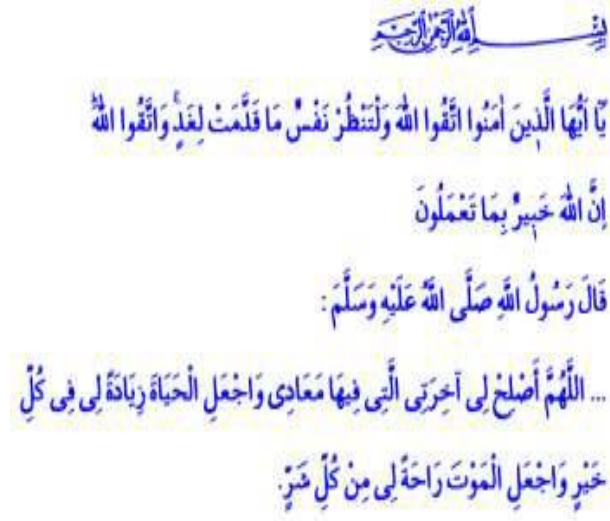 بِسْمِ اللهِ الرَّحْمٰنِ الرَّحِيمِ
يَٓا اَيُّهَا الَّذ۪ينَ اٰمَنُوا اتَّقُوا اللّٰهَ وَلْتَنْظُرْ نَفْسٌ مَا قَدَّمَتْ لِغَدٍۚ وَاتَّقُوا اللّٰهَۜ
اِنَّ اللّٰهَ خَب۪يرٌ بِمَا تَعْمَلُونَ
قَالَ رَسُولُ اللَّهِ صَلَّى اللَّهُ عَلَيْهِ وَسَلَّمَ :
... اللَّهُمَّ أَصْلِحْ لِى آخِرَتِى الَّتِى فِيهَا مَعَادِى وَاجْعَلِ الْحَيَاةَ زِيَادَةً لِى فِى كُلِّ
خَيْرٍ وَاجْعَلِ الْمَوْتَ رَاحَةً لِى مِنْ كُلِّ شَرٍّ.